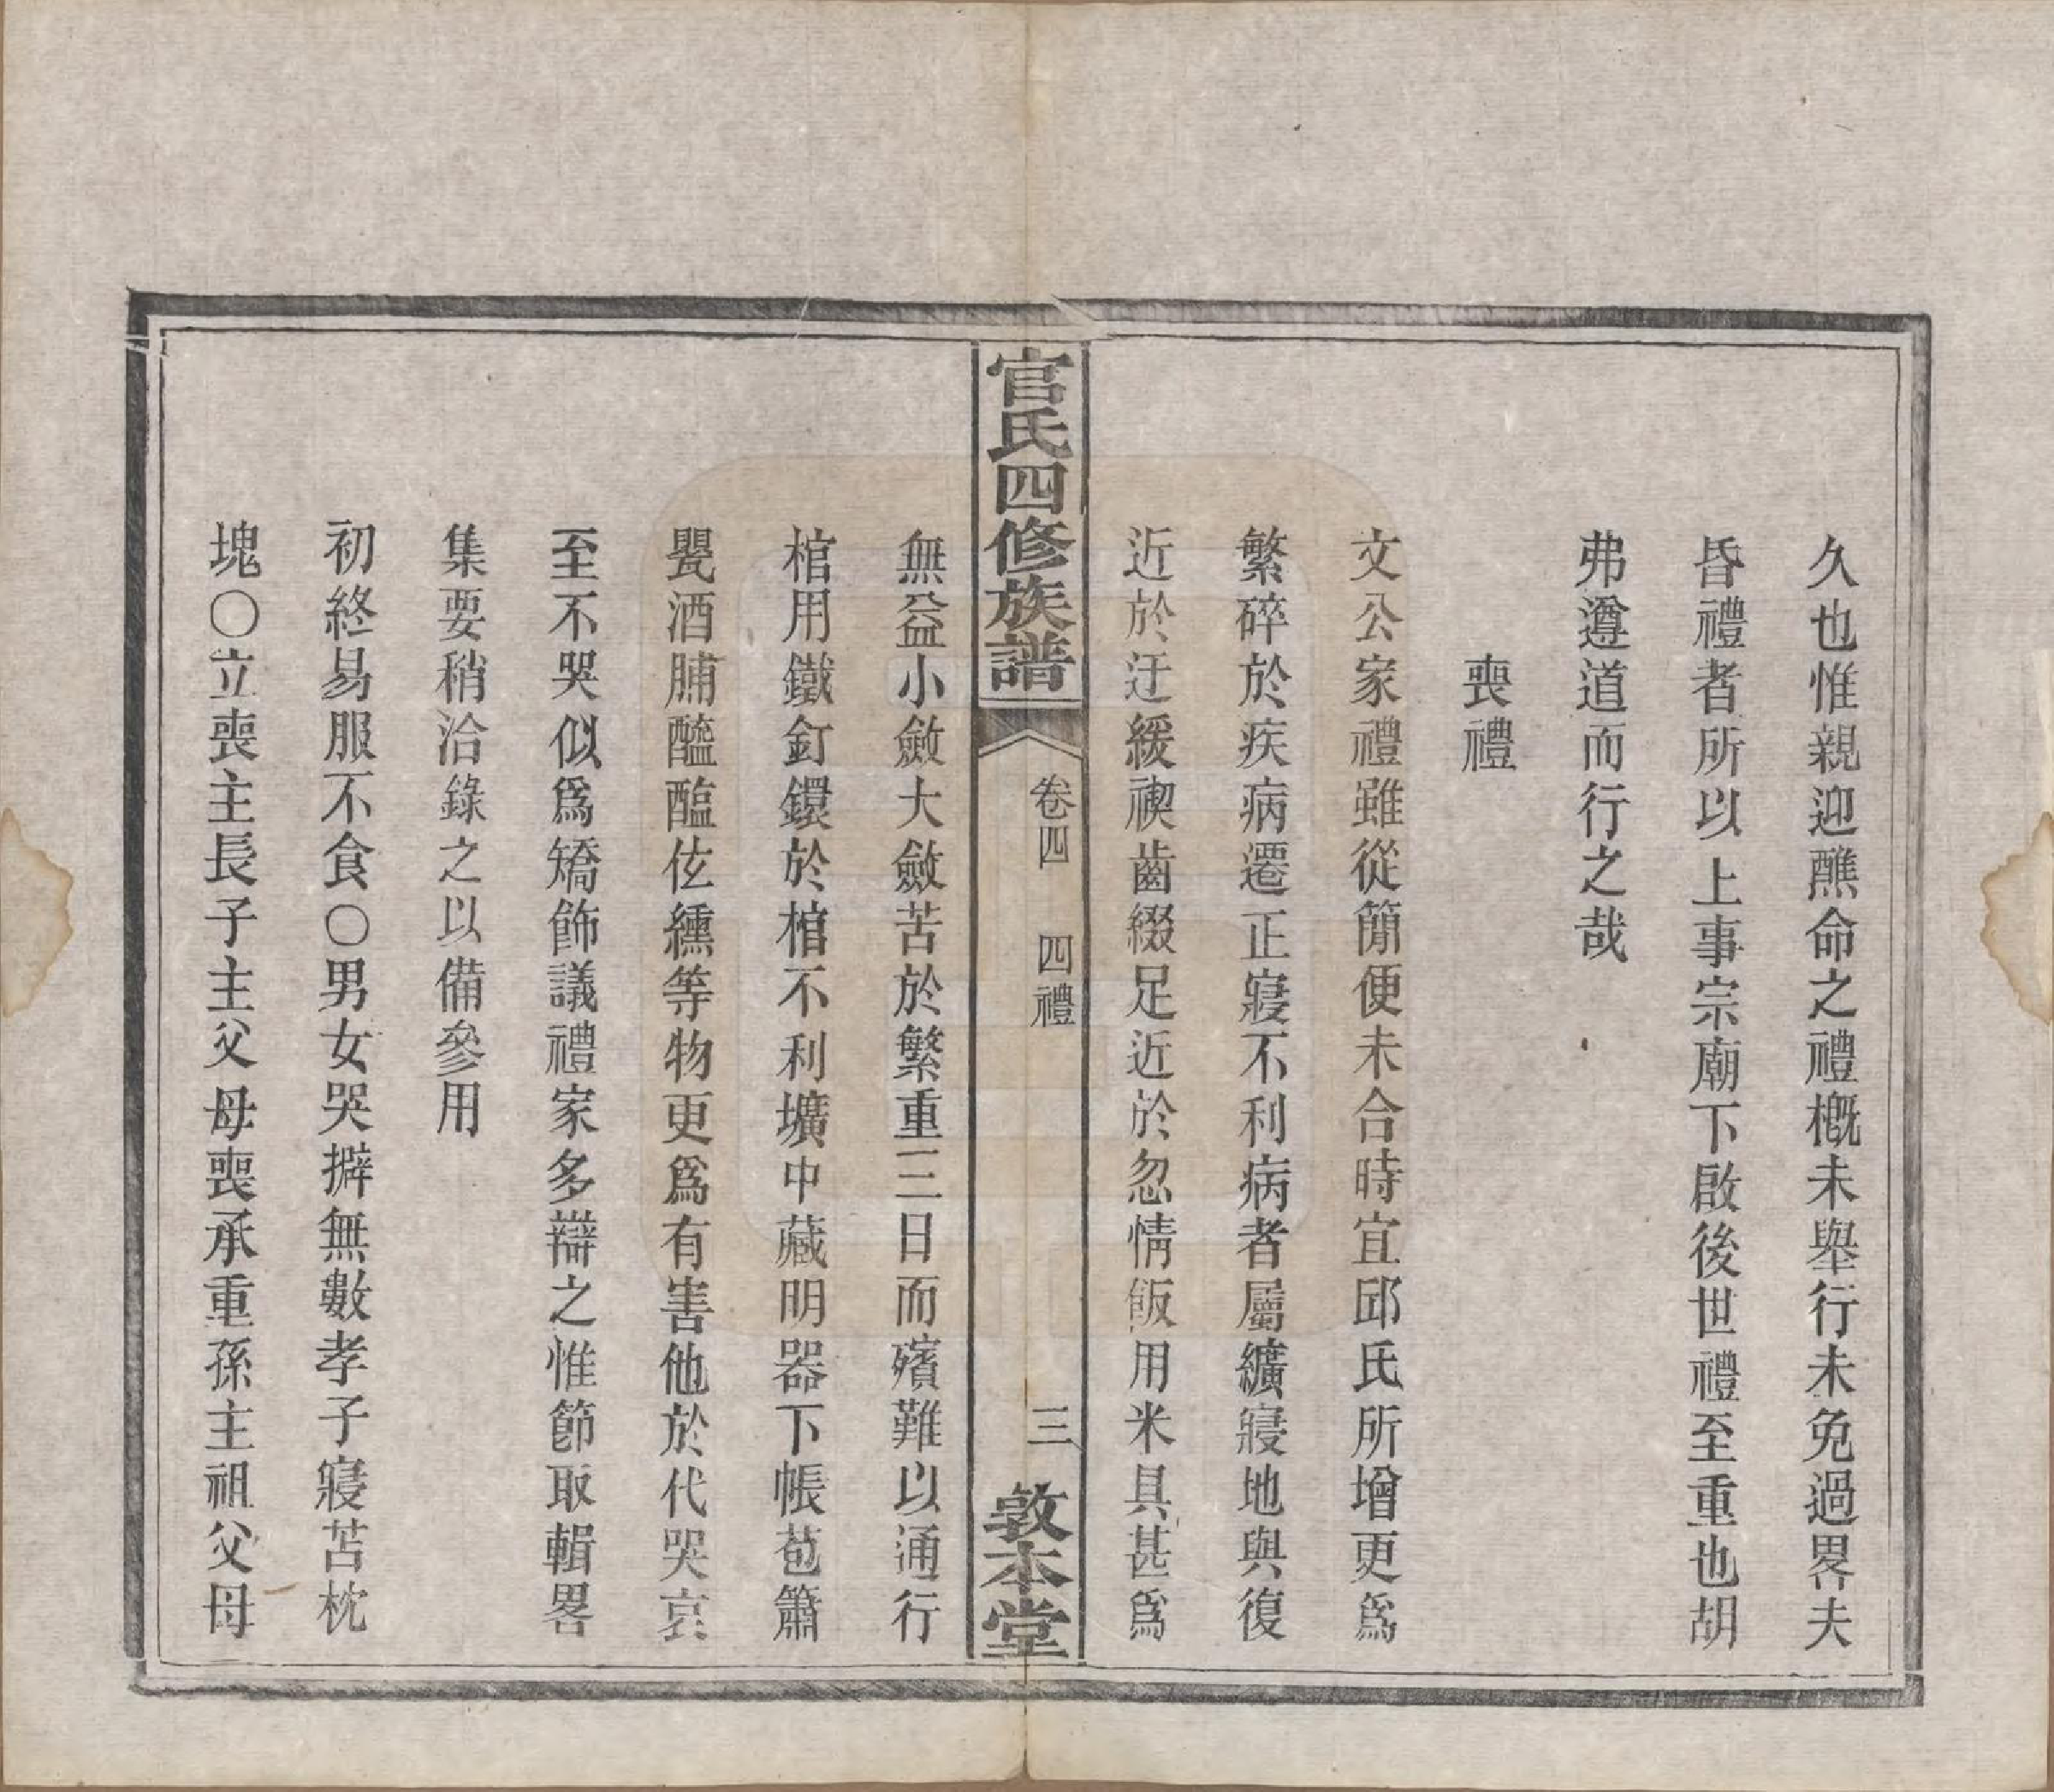 久也惟親迎醮命之禮槪未舉行未免過畧夫
昏禮者所以上事宗廟下啟後世禮至重也胡
弗遵道而行之哉
喪禮
文公家禮雖從簡便未合時宜邱氏所增更爲
繁碎於疾病遷正寢不利病者屬纊寢地與復
近於迂緩禊齒綴足近於忽情飯用米具甚爲
官氏四修族譜
卷四
四禮
三
敦本堂
無益小斂大斂苦於繁重三日而殯難以通行
棺用鐵釘鐶於棺不利壙中藏明器下帳苞簫
甖酒脯醯醢伭纁等物更爲有害他於代哭哀
至不哭似爲矯飾議禮家多辯之惟節取輯畧
集要稍洽錄之以備參用
初終易服不食○男女哭擗無數孝子寢苫枕
塊○立喪主長子主父母喪承重孫主祖父母